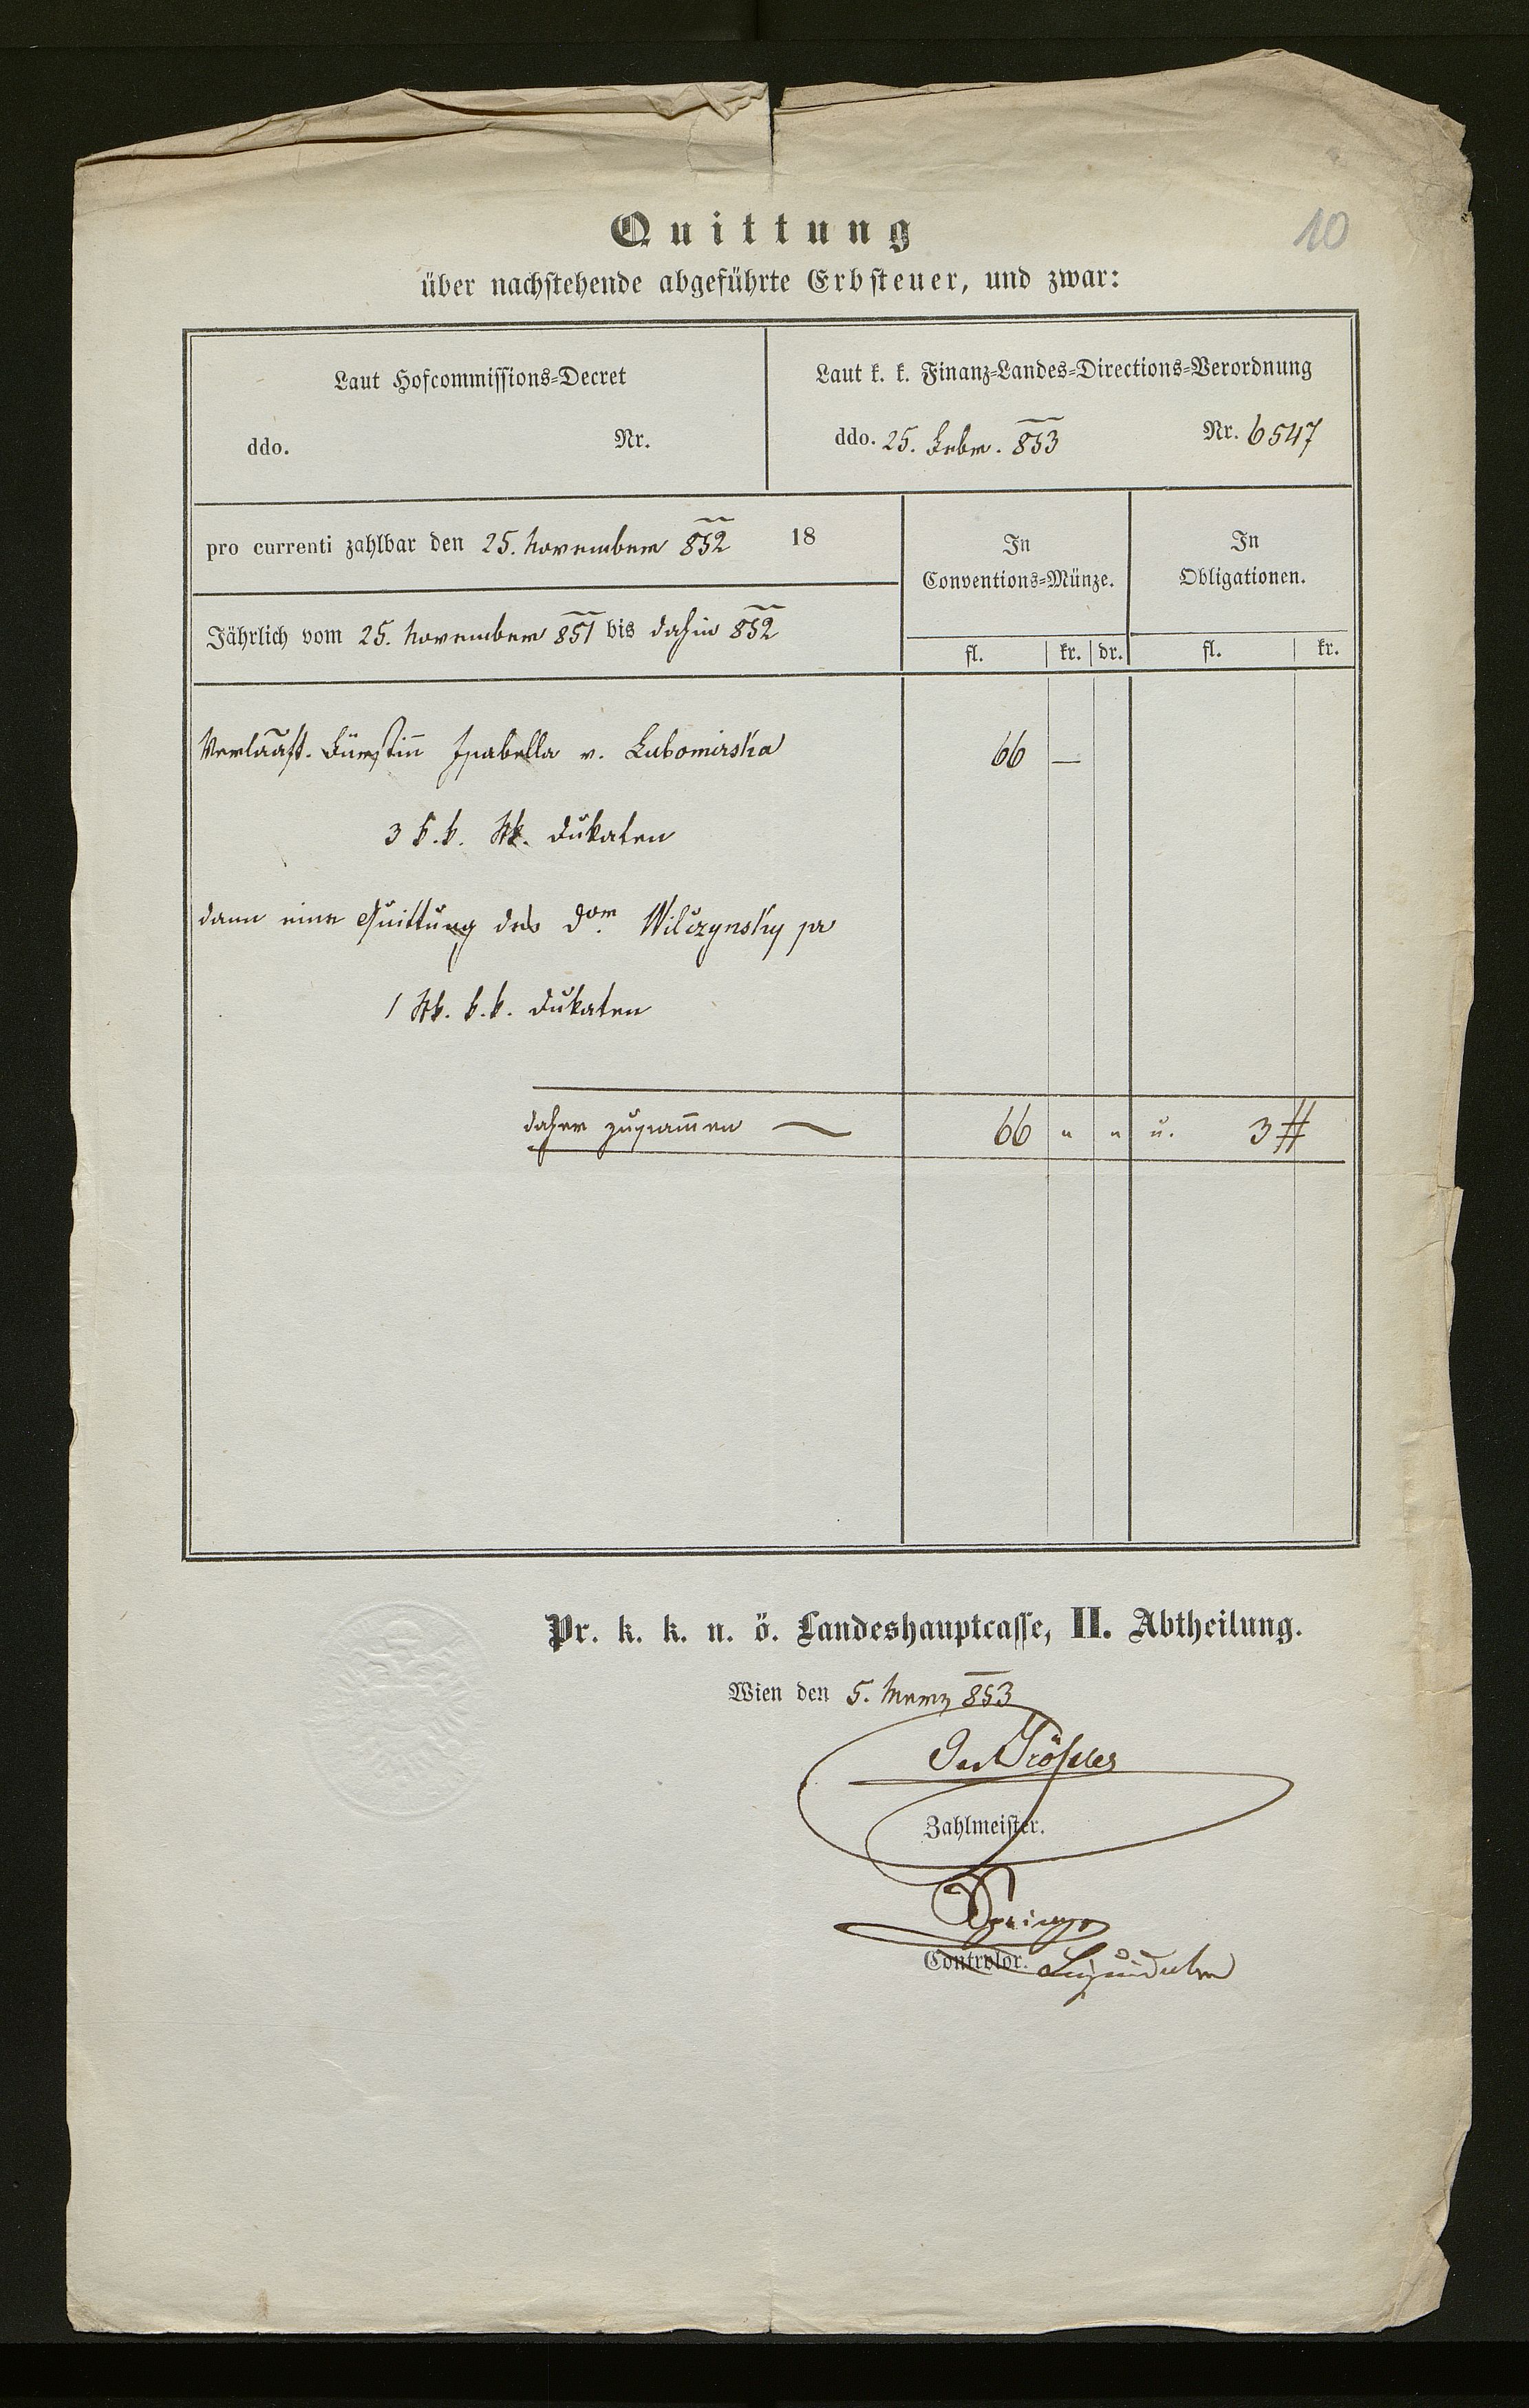 10
Quittung
über nachstehende abgeführte Erbsteuer, und zwar:
Laut Hofcommissions-Decret
ddo. Nr.
Laut k. k. Finanz-Landes-Directions-Verordnung
ddo. 25. Febr. 853 Nr. 6547
pro currenti zahlbar den 25. November 852 18
Jährlich vom 25. November 851 bis dahin 852
In Conventions-Münze.
In Obligationen.
fl. kr. dr. fl. kr.
Verlaasst. Fürstin Isabella v. Lubomirska 66 —
3 k. k. Stk. Dukaten
dann eine Quittung des Dom. Wilczynsky pr
1 Stk. k. k. Dukaten
daher zusammen — 66 " " u. 3 #
Pr. k. k. n. ö. Landeshauptcasse, II. Abtheilung.
Wien den 5. Merz 853
Zahlmeister.
Controlor. Liquidator